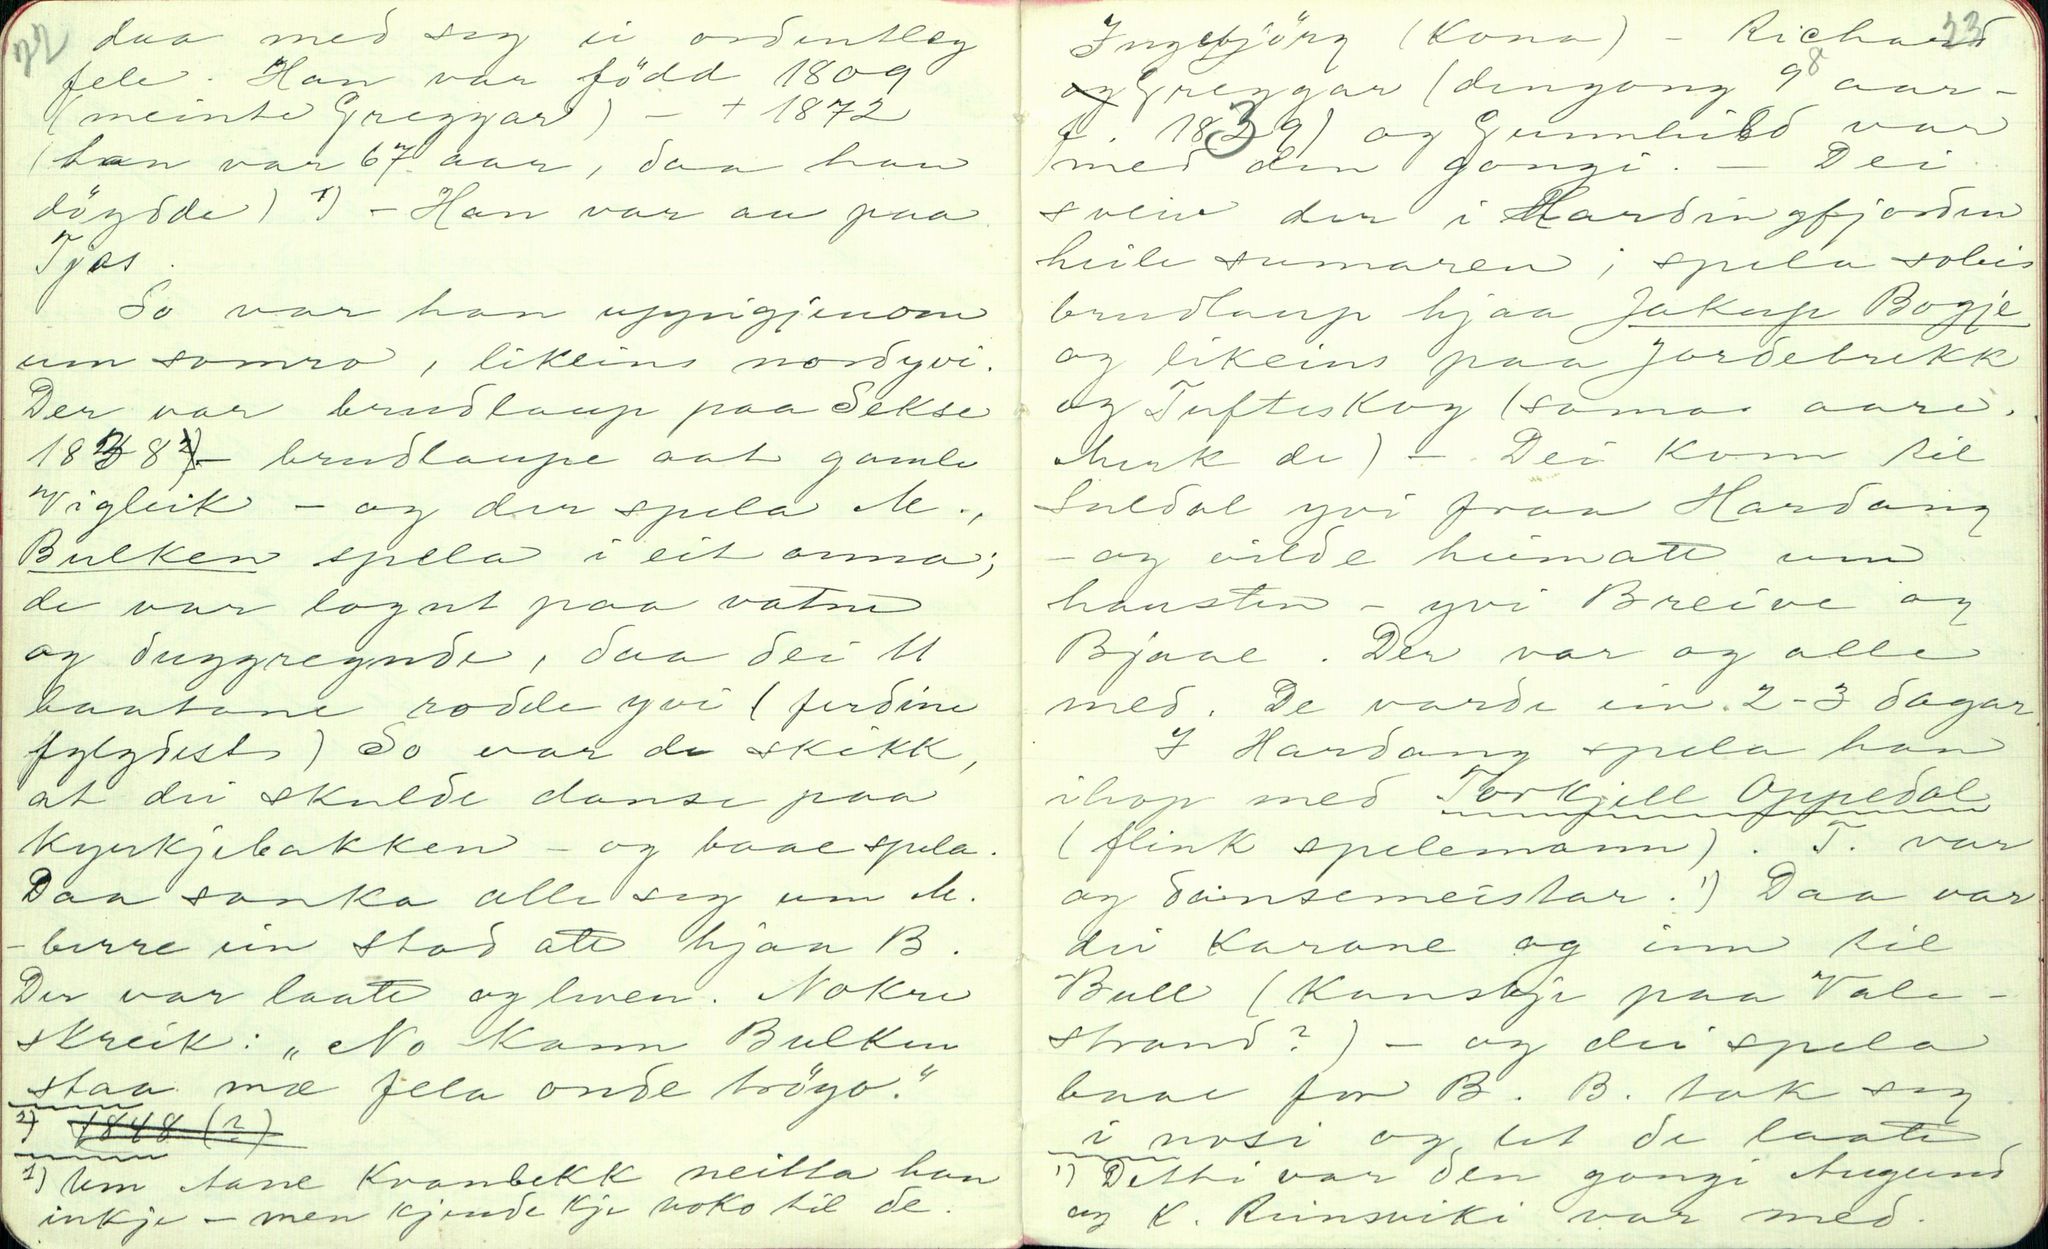 22
daa med seg ei ordentleg
fele. Han var född 1809
(meinte Greggar) - + 1872
(han var 67 aar, daa han
döydde) 1) - Han var au paa
Tjøs.
So var han uppigjenom
um somro, likeins nordyvi.
Der var brudlaup paa Sekse
1838 2) - brudlaupe aat gamle
Vigleik - og der spela M.,
Bulken spela i eit anna;
de var lognt paa vatne
og duggregnde, daa dei 11
baatane rodde yvi (ferdine
fylgdest) So var de skikk,
at dei skulde danse paa
kyrkjebakken - og baae spela.
Daa sanka alle seg um M.
- berre ein stod att hjaa B.
Der var laatt og lwen. Nokre
skreik: „No kann Bulken
staa mæ fela onde tröyo."
2) 1848 (?)
1) Um Aane Kvanbekk neitta han
inkje - men kjende kje noko til de.
23
Ingebjörg (kona) - Richard
og Greggar (dengong 9 8 aar -
f. 1839) og Gunnhild var
med den gongi. - Dei
sveiv der i Hardingfjorden
heile sumaren; spela soleis
brudlaup hjaa Jakup Bogje
og likeins paa Jordebrekk
og Tufteskog (sama aare.
Merk de) - Dei kom til
Suldal yvi fraa Hardang
- og vilde heimatt um
hausten - yvi Breive og
Bjaae. Der var og alle
med. De varde ein 2-3 dagar.
I Hardang spela han
ihop med Torkjell Oppedal
(flink spelemann). T. var
og dansemeistar. 1) Daa var
dei karane og inn til
Bull (kanskje paa Vale-
strand?) - og dei spela
baae for B. B. tok seg
i nosi og let de laate,
1) Detti var den gongi Augund
og K. Reinsviki var med.